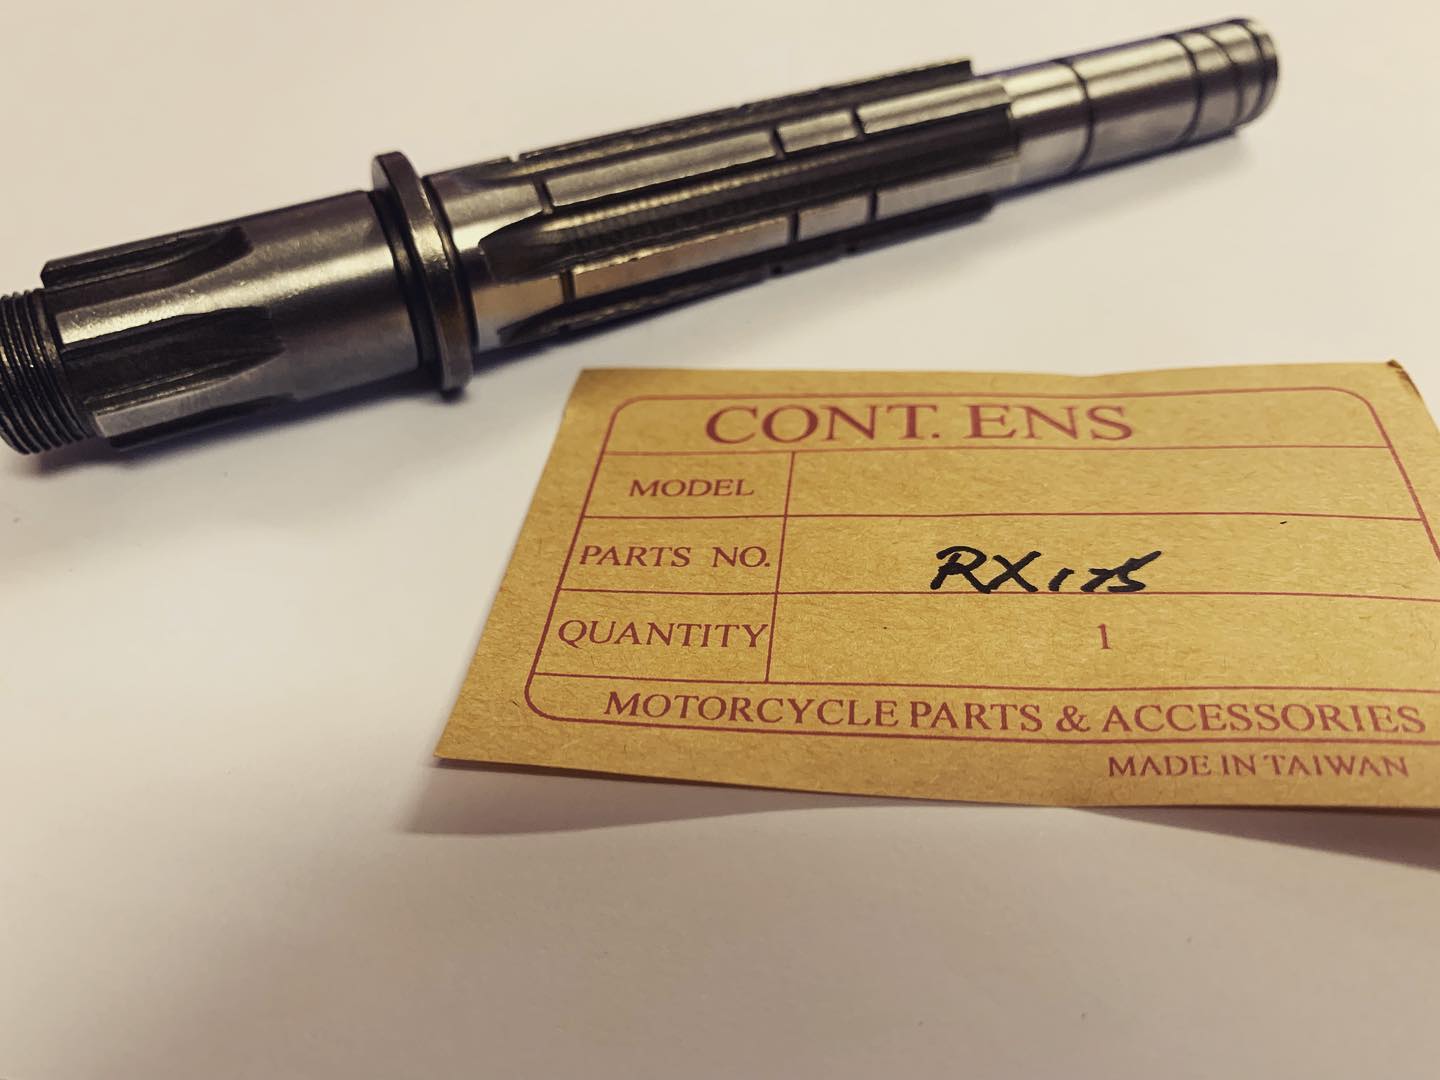 CONT. ENS
MODEL
PARTS NO. RX175
QUANTITY 1
MOTORCYCLE PARTS & ACCESSORIES
MADE IN TAIWAN